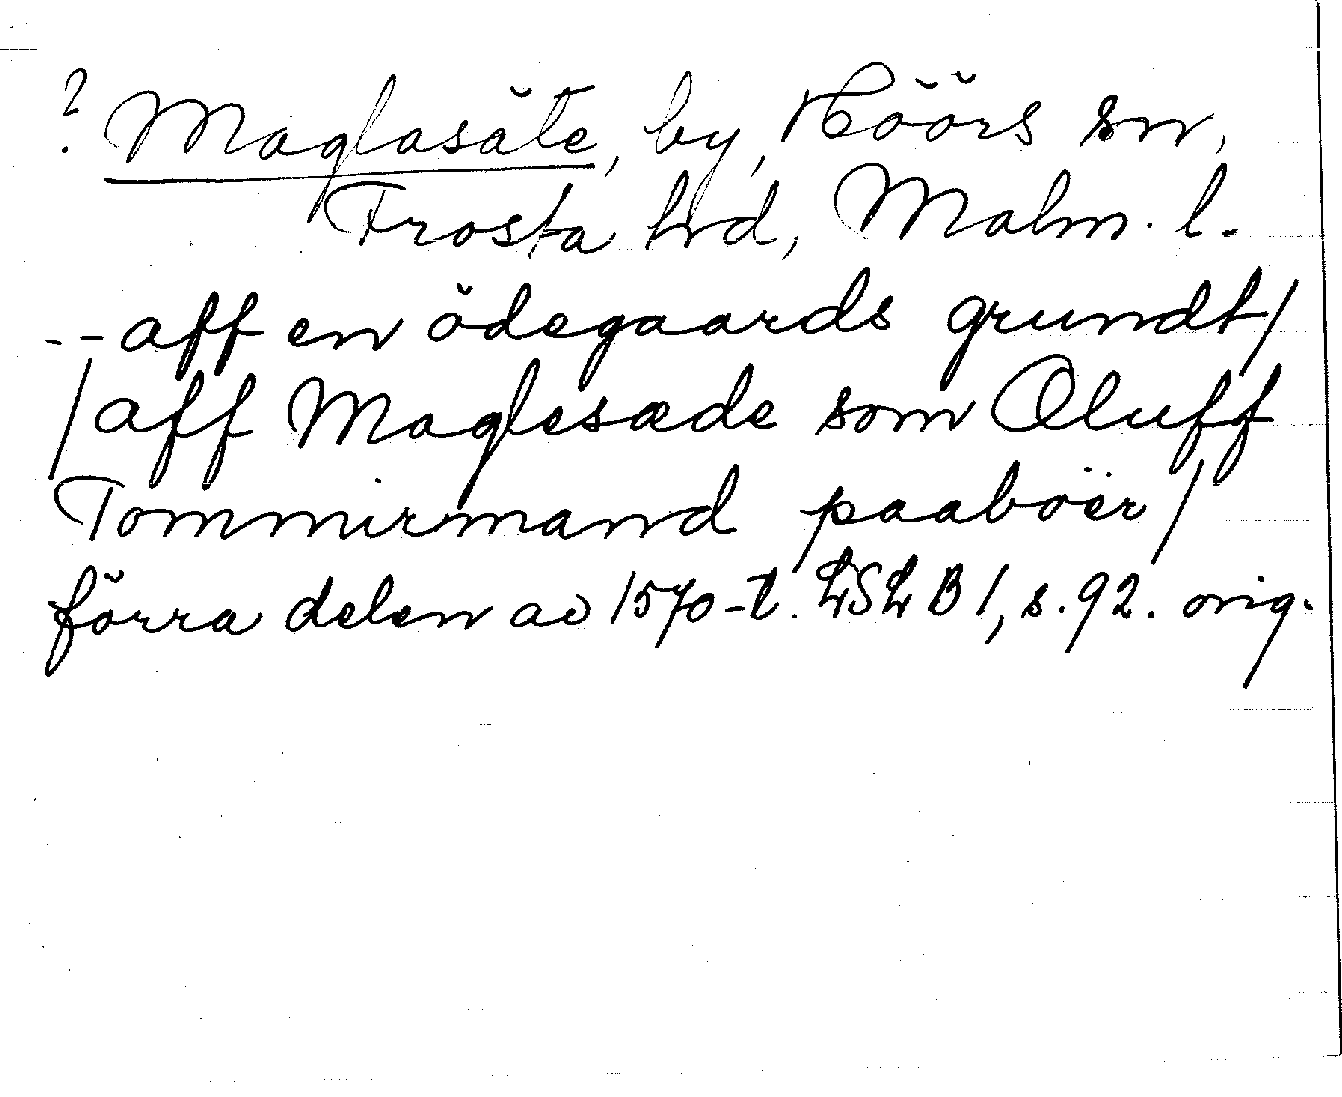 ? Maglasäte, by, Höörs sn,
Frosta hd, Malm. l.
-- aff en ödegaards grundt/
/aff Maglesæde som Oluff
Tommirmand paaböer/
förra delen av 1570-t. LSLB 1, s. 92. orig.